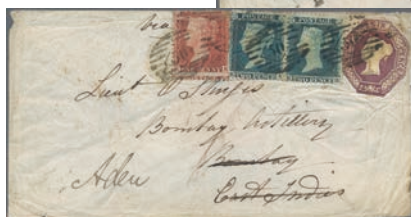 via
POSTAGE POSTAGE
TWO PENCE TWO PENCE
Lieut Sturges
Bombay Artillery
Bombay
Aden
East Indies